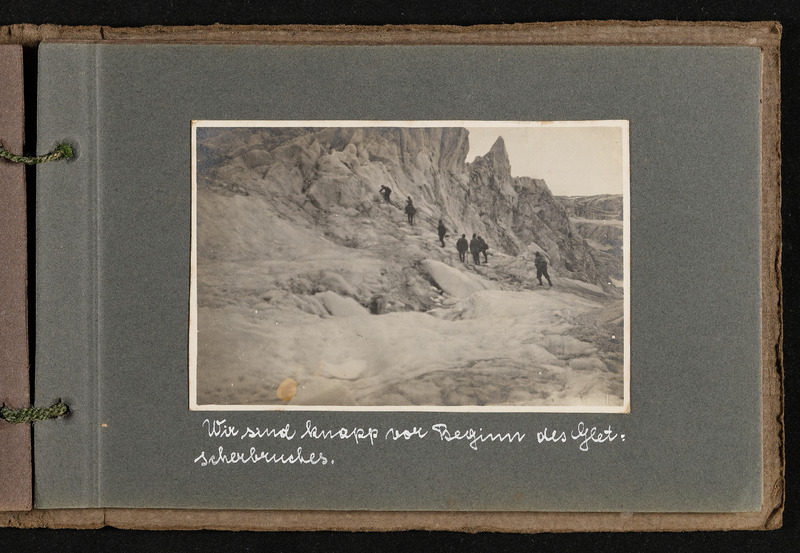 Wir sind knapp vor Beginn des Glet=
scherbruches.